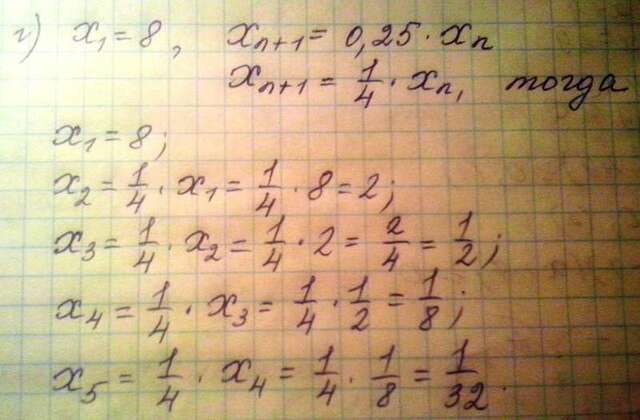 г) x₁ = 8, xₙ₊₁ = 0,25 · xₙ
xₙ₊₁ = 1/4 · xₙ, тогда
x₁ = 8;
x₂ = 1/4 · x₁ = 1/4 · 8 = 2;
x₃ = 1/4 · x₂ = 1/4 · 2 = 2/4 = 1/2;
x₄ = 1/4 · x₃ = 1/4 · 1/2 = 1/8;
x₅ = 1/4 · x₄ = 1/4 · 1/8 = 1/32.